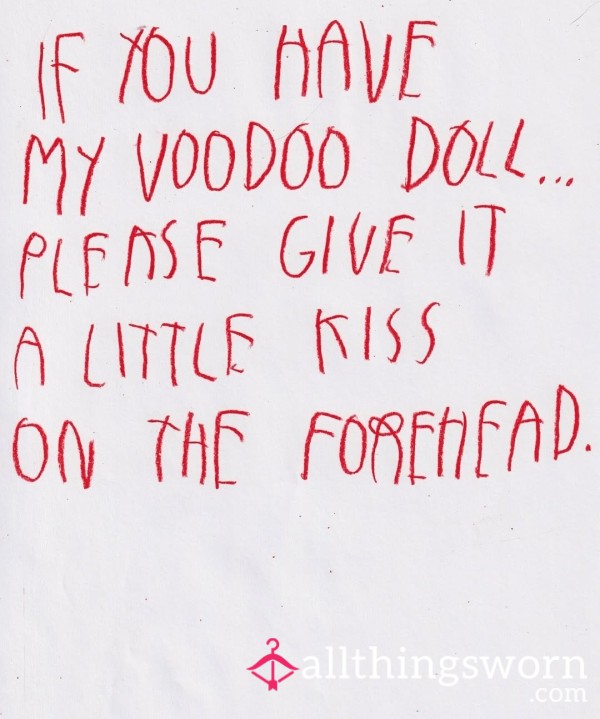 IF YOU HAVE
MY VOODOO DOLL...
PLEASE GIVE IT
A LITTLE KISS
ON THE FOREHEAD.
allthingsworn
.com